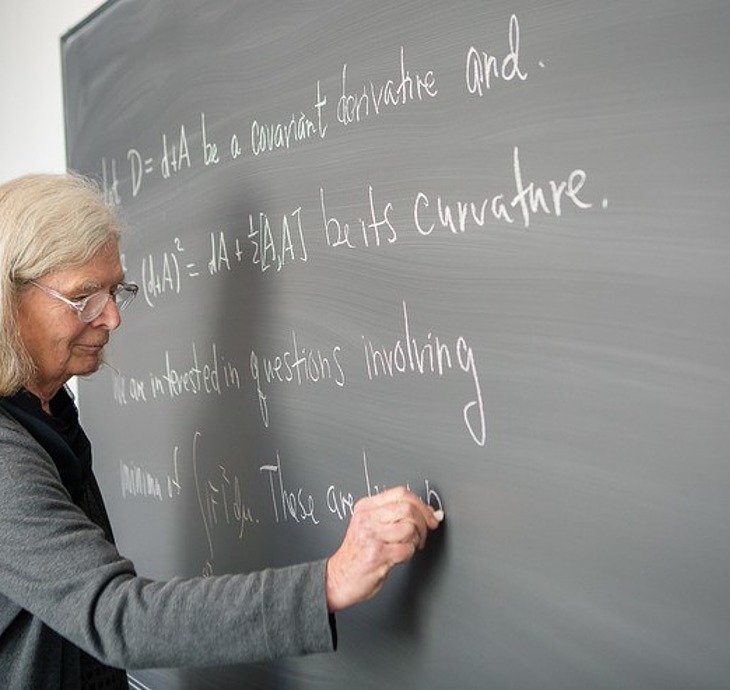 Let D = d+A be a covariant derivative and.
(d+A)² = dA + ½[A,A] be its curvature.
We are interested in questions involving
minima of ∫|F|²dμ. These are